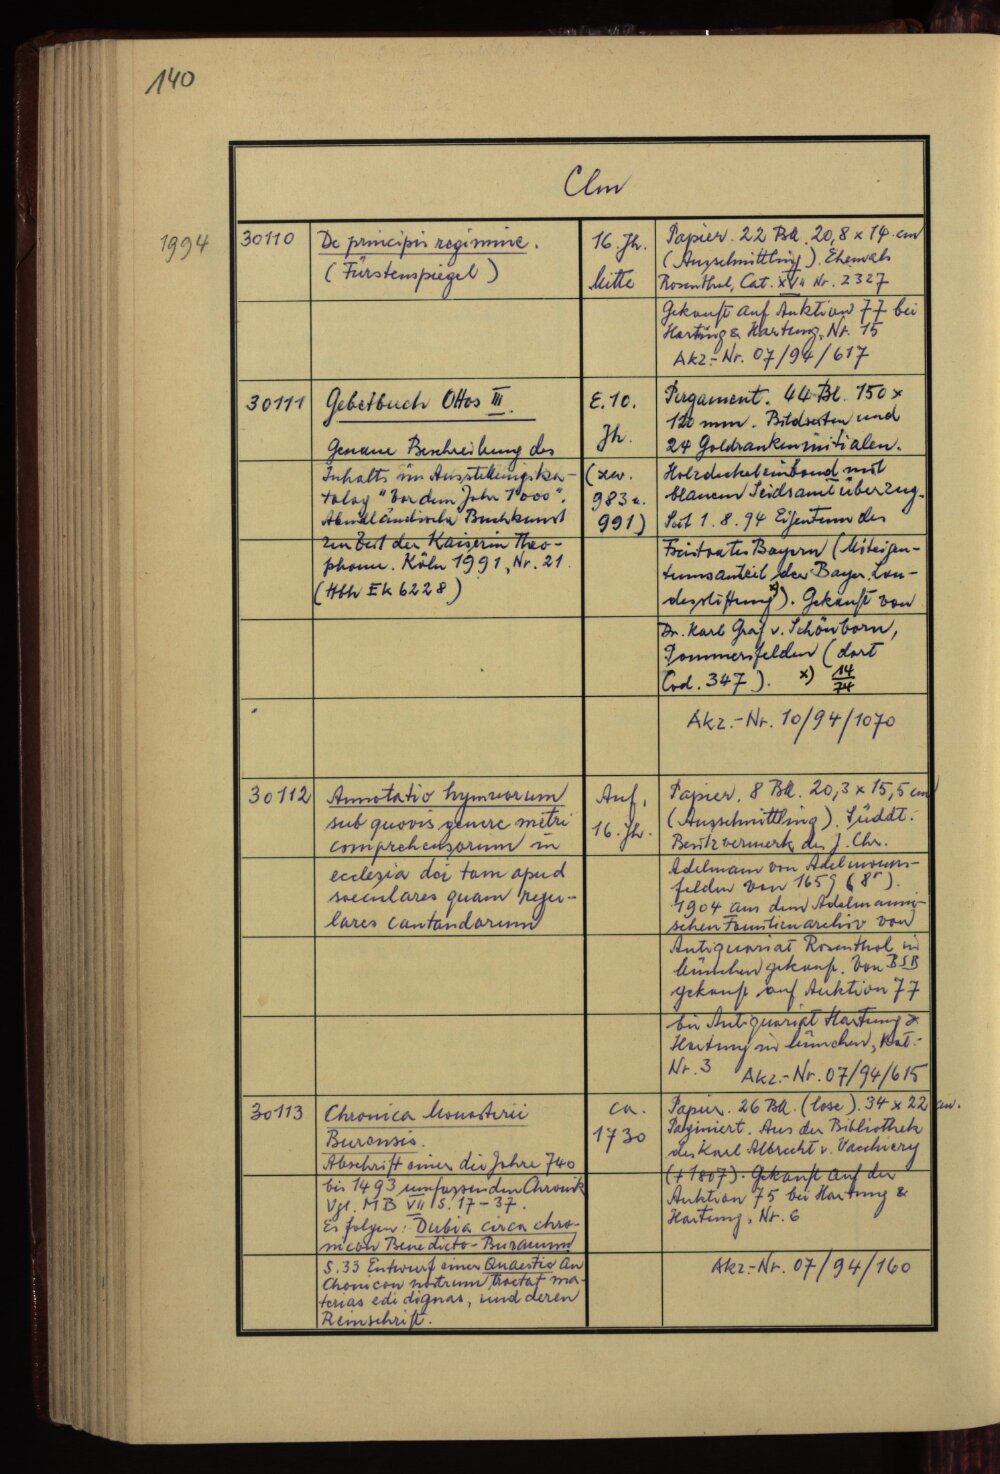 140
Clm
1994
30110
De principis regimine.
(Fürstenspiegel)
16. Jh.
Mitte
Papier. 22 Bll. 20,8 x 14 cm
(Ausschnittling). Ehemals
Rosenthal, Cat. XVII Nr. 2327
Gekauft auf Auktion 77 bei
Hartung & Hartung, Nr. 15
Akz.-Nr. 07/94/617
30111
Gebetbuch Ottos III.
Genaue Beschreibung des
Inhalts im Ausstellungska-
talog "Vor dem Jahr 1000".
Abendländische Buchkunst
zur Zeit der Kaiserin Theo-
phanu. Köln 1991, Nr. 21.
(Hbh Ek 6228)
E. 10.
Jh.
(zw.
983 u.
991)
Pergament. 44 Bl. 150 x
120 mm. Bildseiten und
24 Goldrankeninitialen.
Holzdeckeleinband mit
blauem Seidsamtüberzug.
Seit 1.8.94 Eigentum des
Freistaates Bayern (Miteigen-
tumsanteil der Bayer. Lan-
desstiftung x)). Gekauft von
Dr. Karl Graf v. Schönborn,
Pommersfelden (dort
Cod. 347).
x) 14/74
Akz.-Nr. 10/94/1070
30112
Annotatio hymnorum
sub quovis genere metri
comprehensorum in
ecclesia dei tam apud
saeculares quam regu-
lares cantandorum
Anf.
16. Jh.
Papier. 8 Bll. 20,3 x 15,5 cm
(Ausschnittling). Süddt.
Besitzvermerk des J. Chr.
Adelmann von Adelmanns-
felden von 1659 (8r).
1904 aus dem Adelmanni-
schen Familienarchiv von
Antiquariat Rosenthal in
München gekauft. Von BSB
gekauft auf Auktion 77
bei Antiquariat Hartung &
Hartung in München, Kat.-
Nr. 3
Akz.-Nr. 07/94/615
30113
Chronica Monasterii
Buransis.
Abschrift einer die Jahre 740
bis 1493 umfassenden Chronik
Vgl. MB VII S. 17-37.
Es folgen: Dubia circa chro-
nicon Benedicto-Buranum
S. 33 Entwurf einer Quaestio An
Chonicon nostrum tractat ma-
terias edi dignas, und deren
Reinschrift.
ca.
1730
Papier. 26 Bll. (lose). 34 x 22 cm.
Paginiert. Aus der Bibliothek
des Karl Albrecht v. Vacchiery
(†1807). Gekauft auf der
Auktion 75 bei Hartung &
Hartung, Nr. 6
Akz.-Nr. 07/94/160